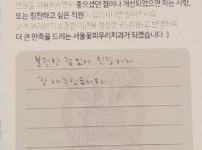 병원을 이용하시면서 좋으셨던 점이나 개선되었으면 하는 사항,
또는 칭찬하고 싶은 직원이 있으시다면
더 큰 만족을 드리는 서울꽃피우리치과가 되겠습니다 :)
불편한 점 없이 친절하게
잘 해주셨습니다